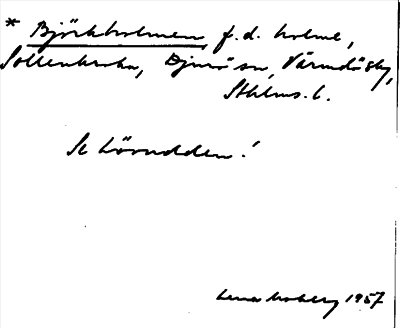 * Björkholmen, f.d. holme,
Sollenkroka, Djurö sn, Värmdö skg,
Sthlms l.
Se Lövudden!
Lena Moberg 1957